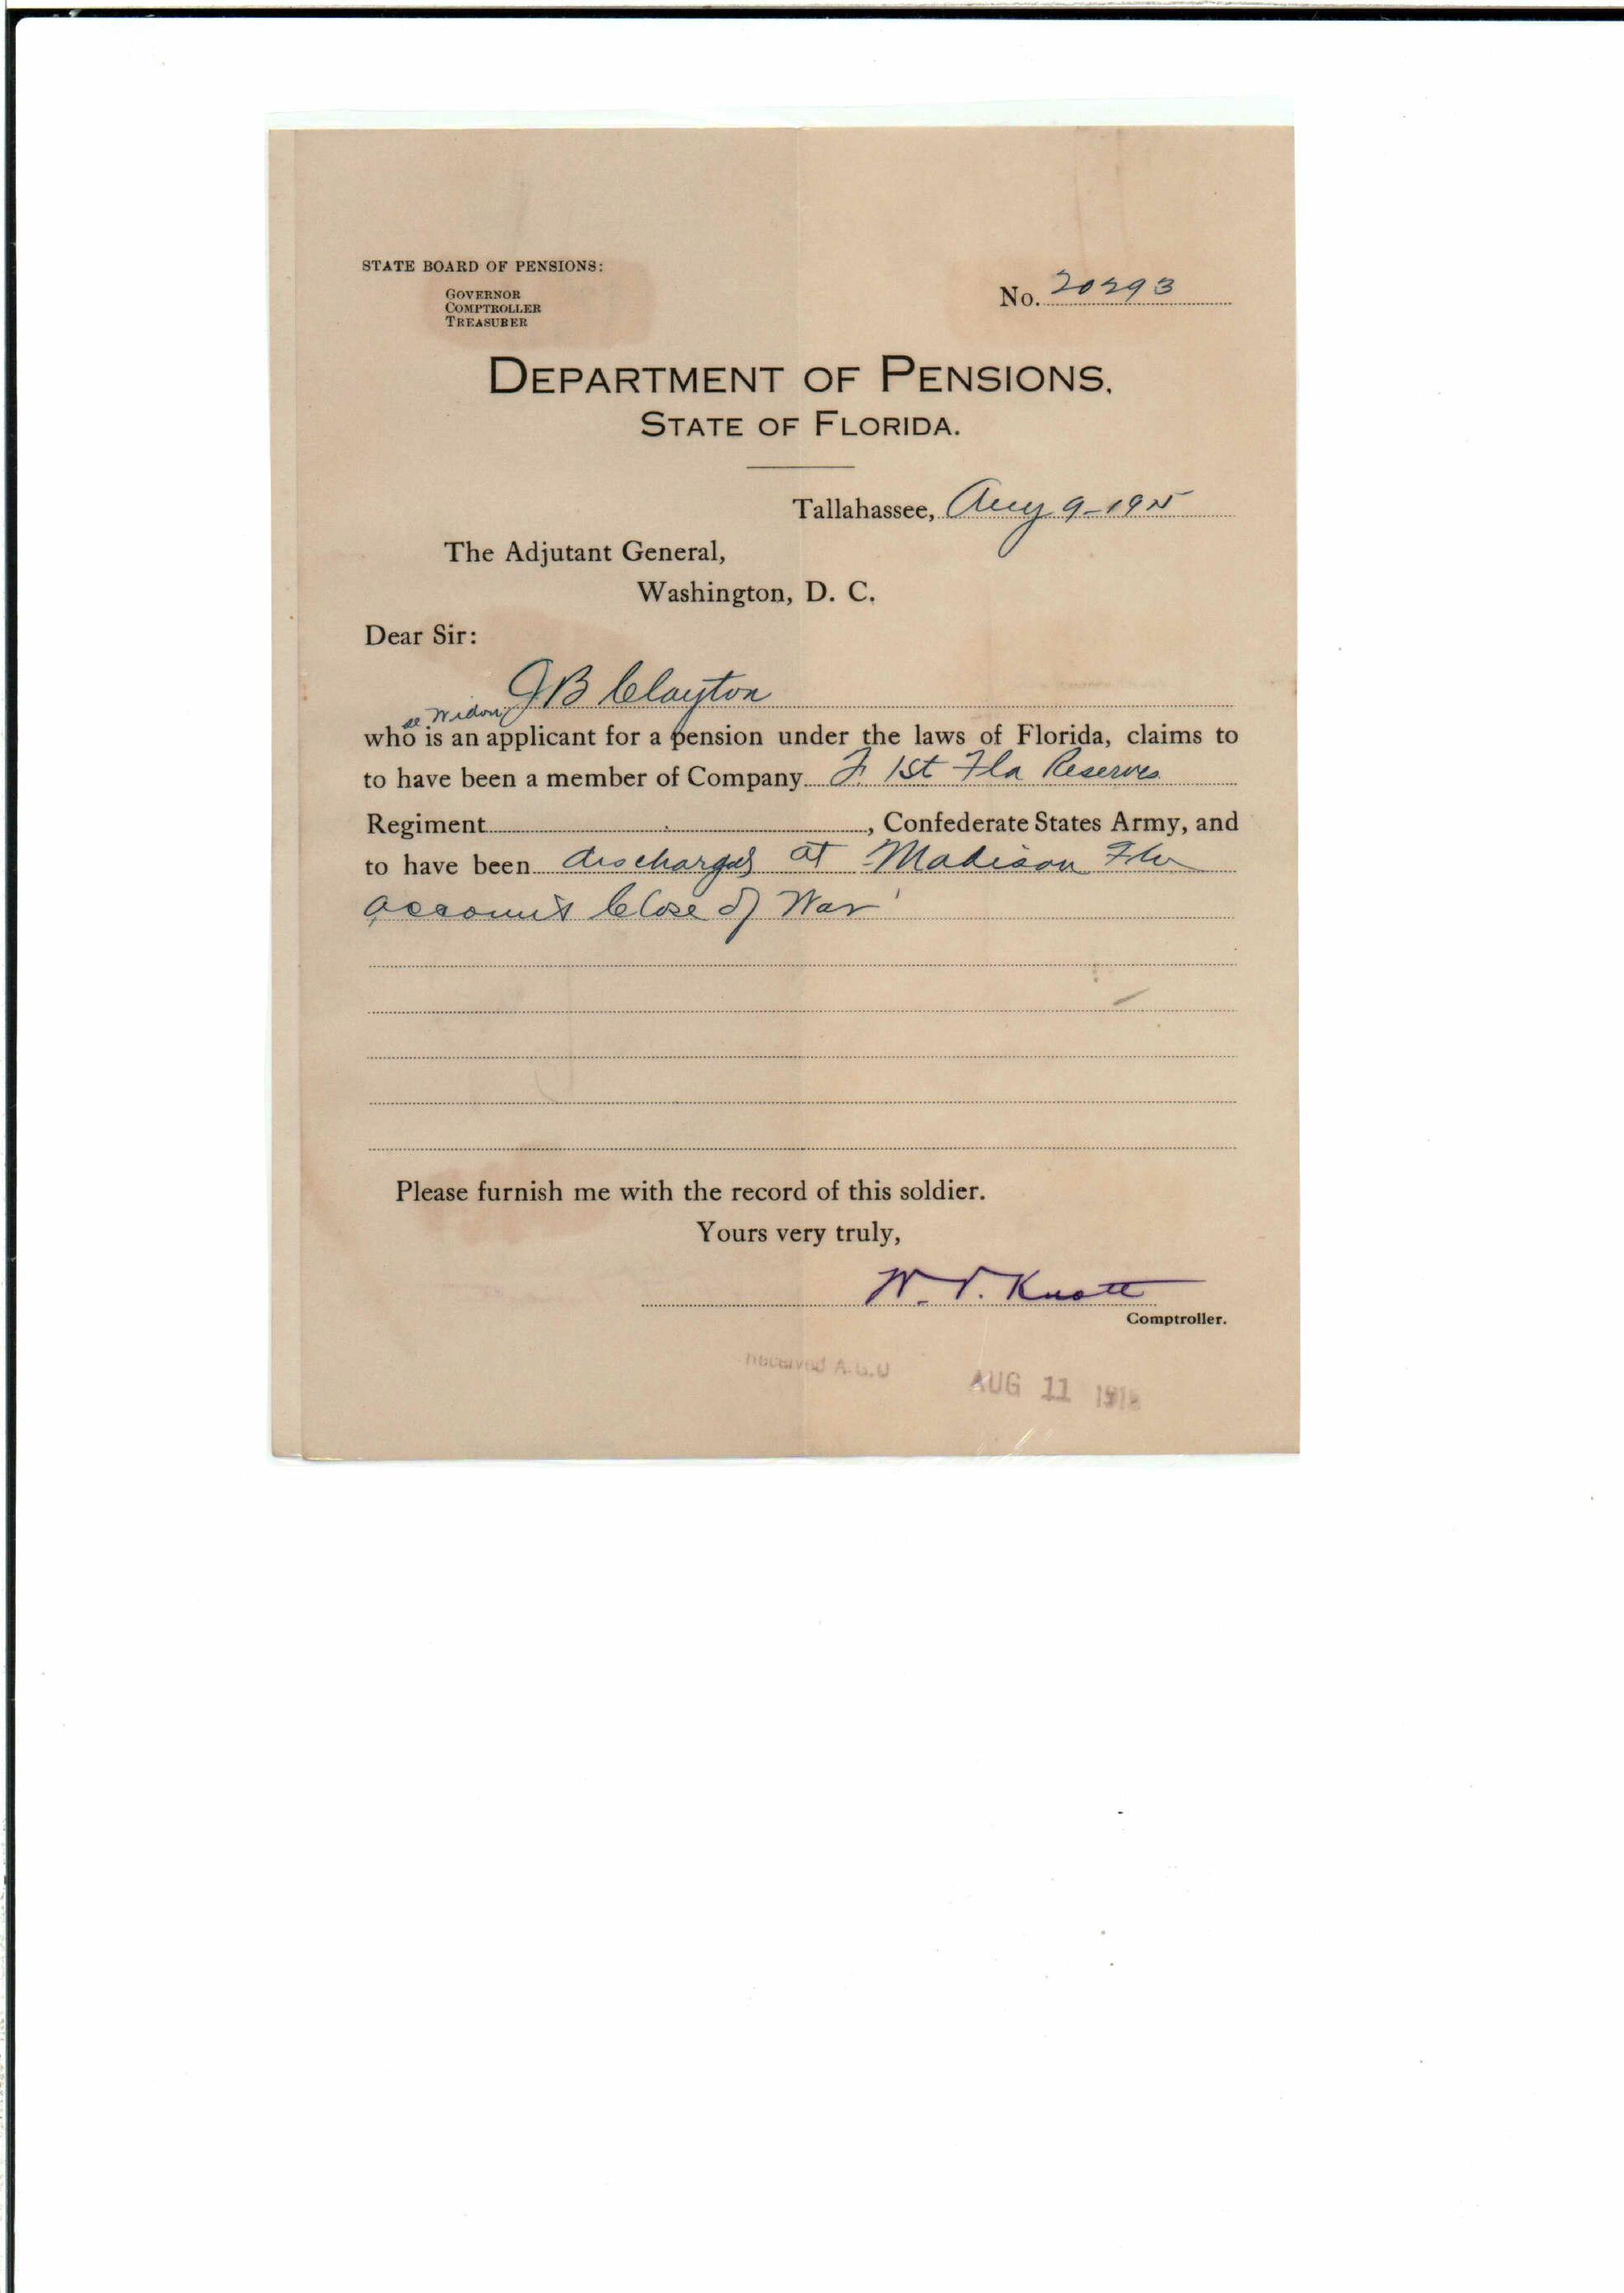 STATE BOARD OF PENSIONS:
GOVERNOR
COMPTROLLER
TREASURER
No. 20293
DEPARTMENT OF PENSIONS,
STATE OF FLORIDA.
Tallahassee, Aug 9-1915
The Adjutant General,
Washington, D. C.
Dear Sir:
JB Clayton
se Widow
who is an applicant for a pension under the laws of Florida, claims to
to have been a member of Company F. 1st Fla Reserves
Regiment, Confederate States Army, and
to have been discharged at Madison Fla
account Close of War
Please furnish me with the record of this soldier.
Yours very truly,
W. V. Knott
Comptroller.
Received A.G.O
AUG 11